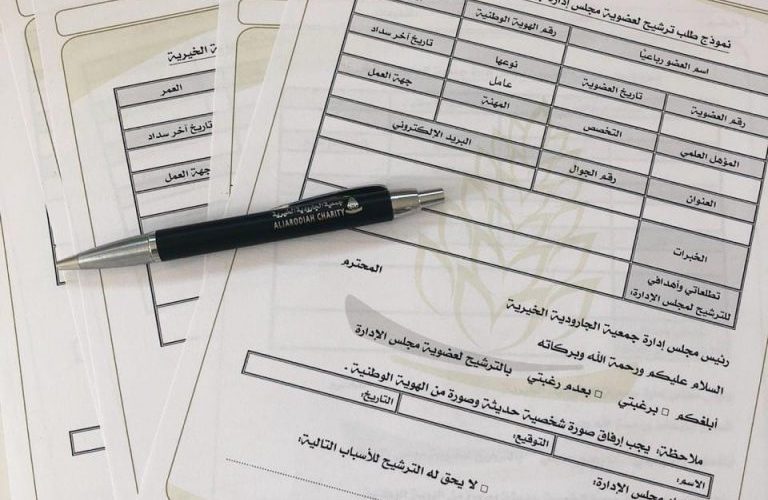 نموذج طلب ترشيح لعضوية مجلس إدارة
اسم العضو رباعياً
رقم الهوية الوطنية
رقم العضوية
تاريخ العضوية
نوعها
تاريخ آخر سداد
عامل
المؤهل العلمي
التخصص
المهنة
جهة العمل
العنوان
رقم الجوال
البريد الالكتروني
الخبرات
تطلعاتي وأهدافي
للترشيح لمجلس الإدارة:
رئيس مجلس إدارة جمعية الجارودية الخيرية
المحترم
السلام عليكم ورحمة الله وبركاته
أبلغكم □ برغبتي □ بعدم رغبتي بالترشيح لعضوية مجلس الإدارة
ملاحظة: يجب إرفاق صورة شخصية حديثة وصورة من الهوية الوطنية .
الاسم:
التوقيع:
التاريخ:
مجلس الإدارة:
□ لا يحق له الترشيح للأسباب التالية:
جمعية الجارودية الخيرية
ALJARODIAH CHARITY
الخيرية
العمر
تاريخ آخر سداد
جهة العمل